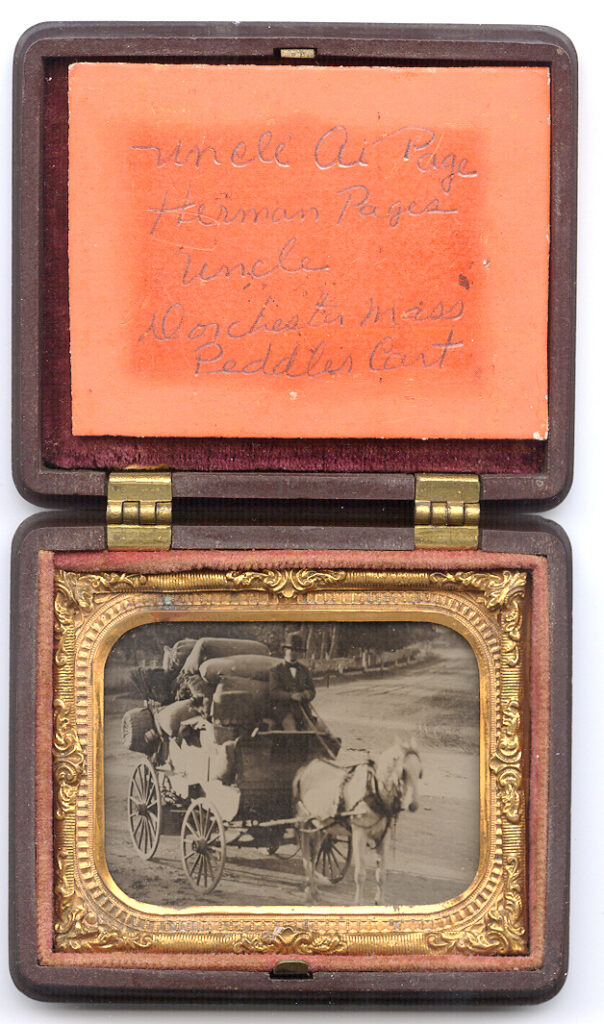 Uncle Ai Page
Herman Pages
Uncle
Dorchester Mass
Peddler Cart